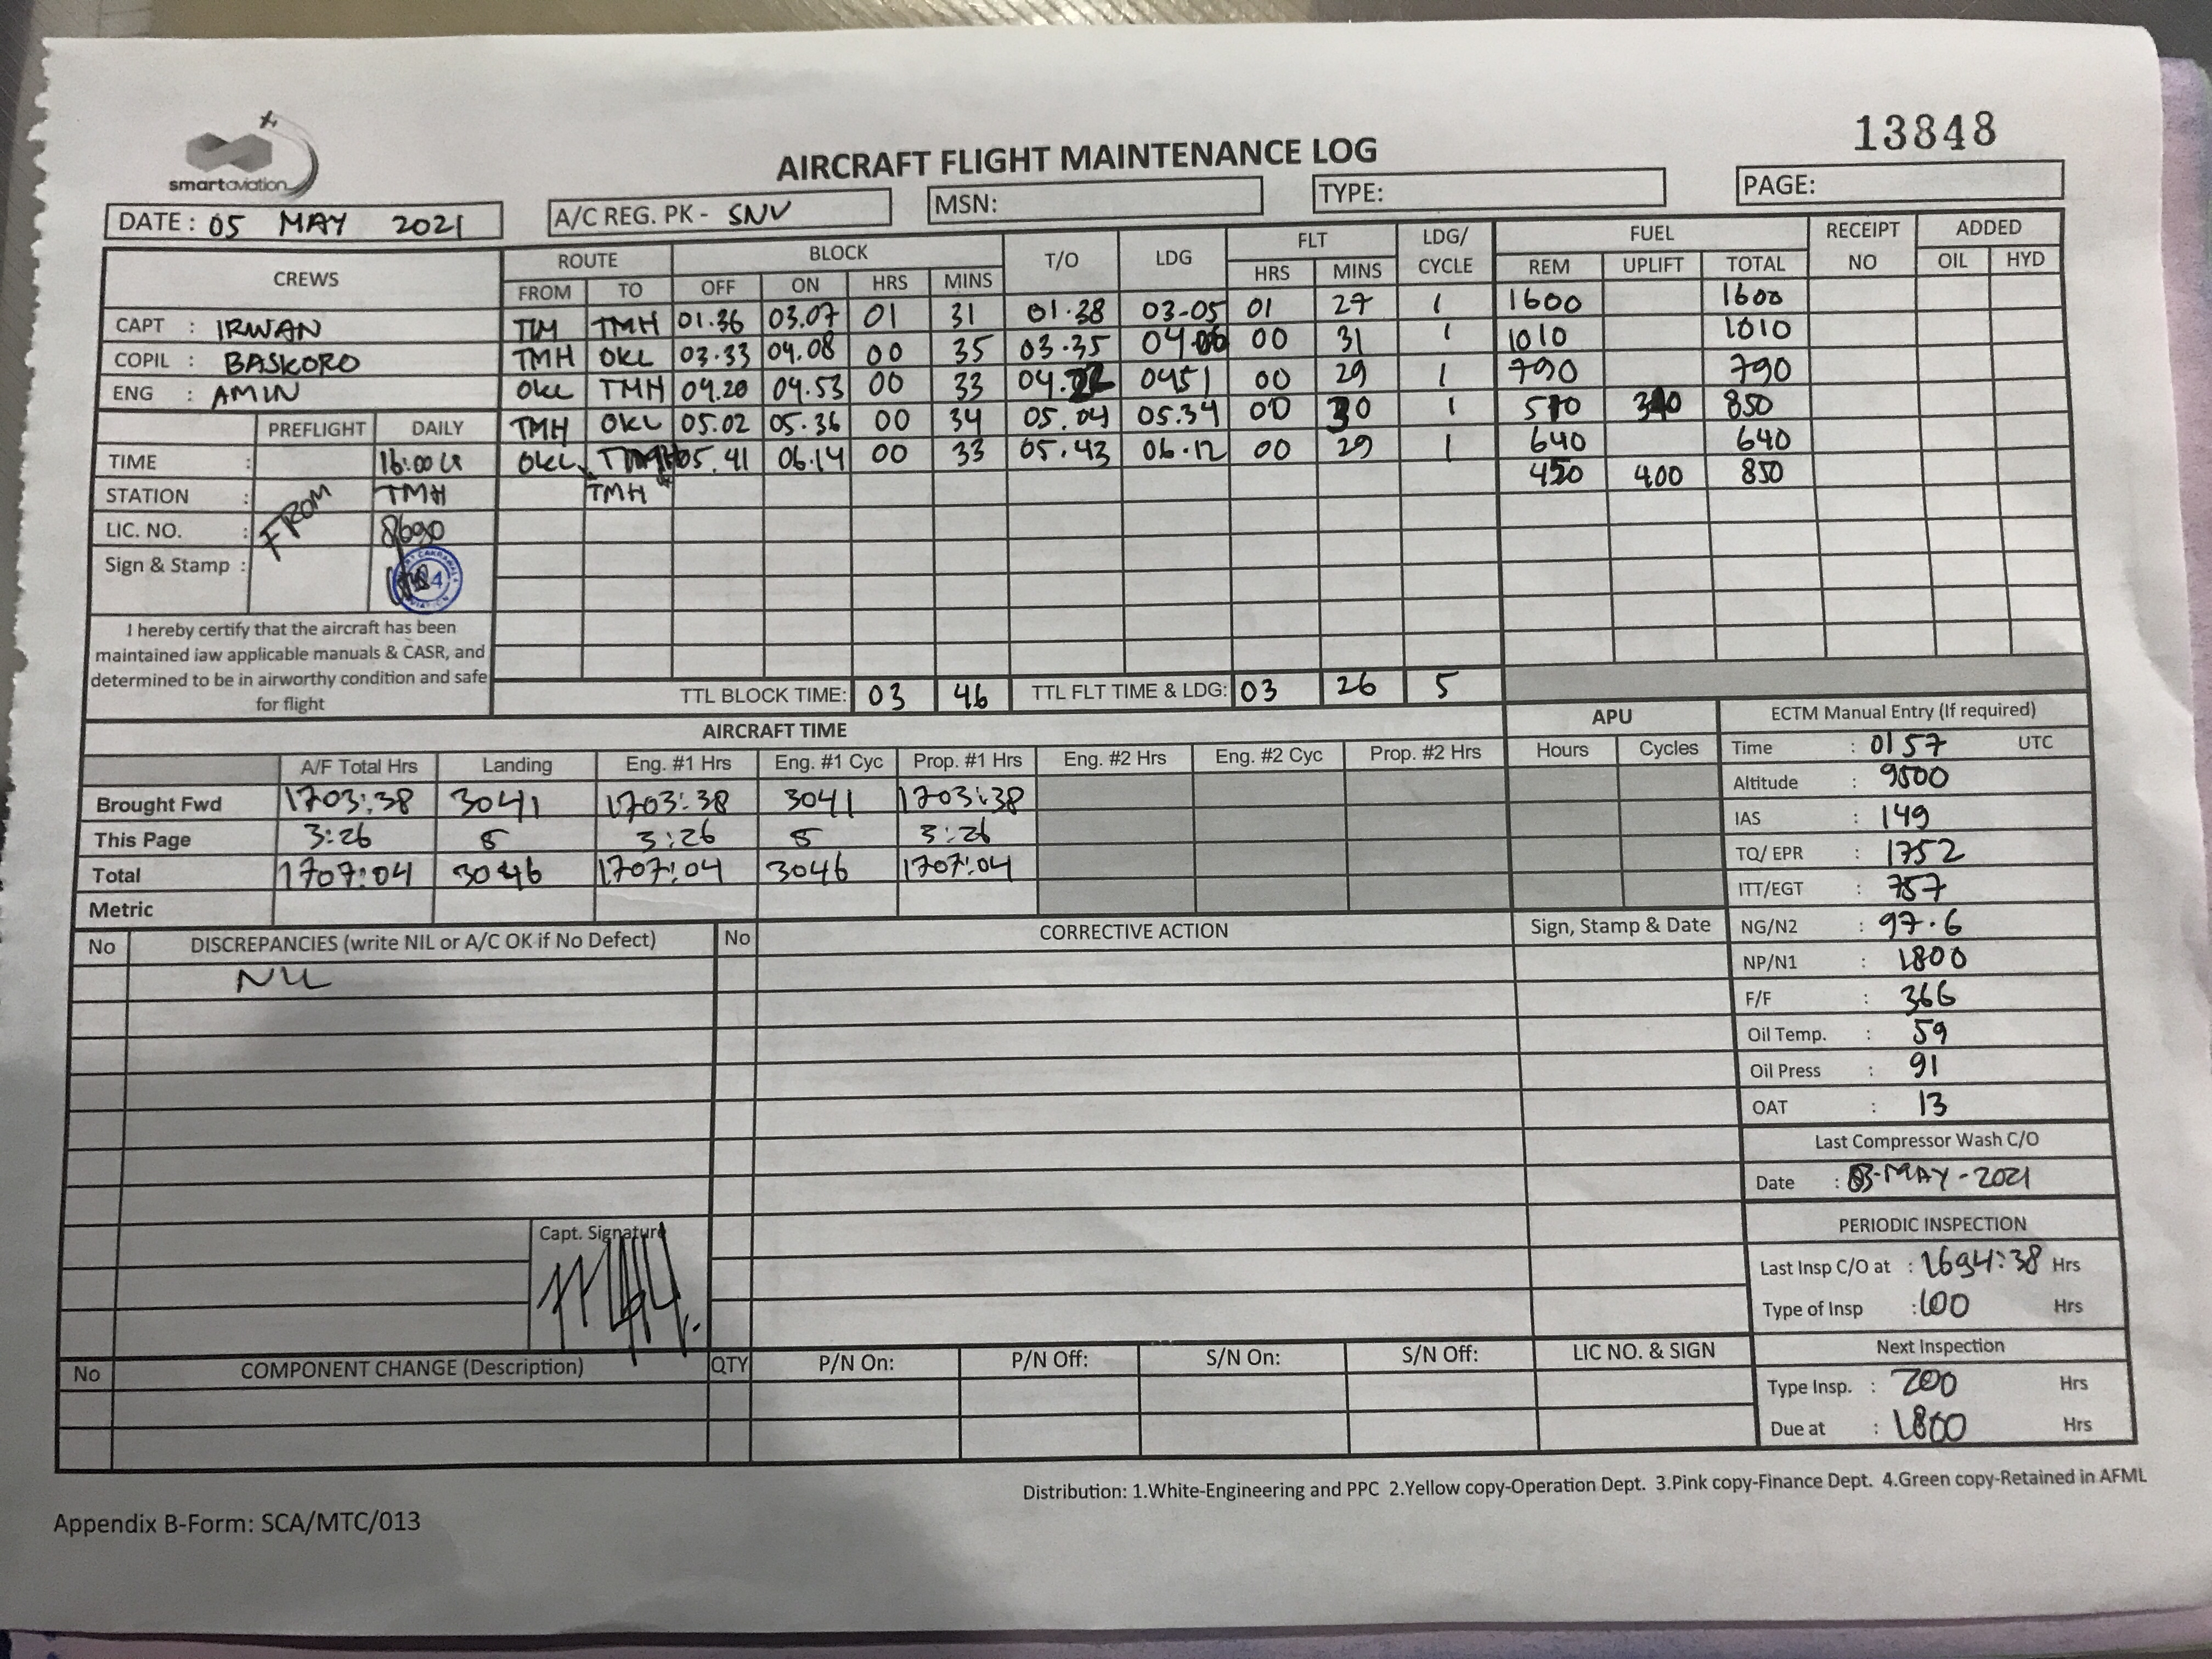 smartaviation
13848
AIRCRAFT FLIGHT MAINTENANCE LOG
DATE : 05 MAY 2021 A/C REG. PK - SNV MSN: TYPE: PAGE:
CREWS ROUTE BLOCK T/O LDG FLT LDG/ CYCLE FUEL RECEIPT NO ADDED
FROM TO OFF ON HRS MINS HRS MINS REM UPLIFT TOTAL OIL HYD
CAPT : IRWAN TIM TMH 01.36 03.07 01 31 01.38 03-05 01 27 1 1600 1600
COPIL : BASKORO TMH OKL 03.33 04.08 00 35 03.35 04 06 00 31 1 1010 1010
ENG : AMIN OKL TMH 04.20 04.53 00 33 04.22 0451 00 29 1 790 790
PREFLIGHT DAILY TMH OKL 05.02 05.36 00 34 05.04 05.34 00 30 1 510 340 850
TIME : 16:00 OKL 05.41 06.14 00 33 05.43 06.12 00 29 1 640 640
STATION : FROM TMH TMH 450 400 850
LIC. NO. : 8690
Sign & Stamp :
I hereby certify that the aircraft has been
maintained iaw applicable manuals & CASR, and
determined to be in airworthy condition and safe
for flight
TTL BLOCK TIME: 03 46 TTL FLT TIME & LDG: 03 26 5
AIRCRAFT TIME APU ECTM Manual Entry (If required)
A/F Total Hrs Landing Eng. #1 Hrs Eng. #1 Cyc Prop. #1 Hrs Eng. #2 Hrs Eng. #2 Cyc Prop. #2 Hrs Hours Cycles Time : 0157 UTC
Brought Fwd 1703:38 3041 1703:38 3041 1703:38 Altitude : 9500
This Page 3:26 5 3:26 5 3:26 IAS : 149
Total 1707:04 3046 1707:04 3046 1707:04 TQ/ EPR : 1752
Metric ITT/EGT : 757
No DISCREPANCIES (write NIL or A/C OK if No Defect) No CORRECTIVE ACTION Sign, Stamp & Date NG/N2 : 97.6
NIL NP/N1 : 1800
F/F : 366
Oil Temp. : 59
Oil Press : 91
OAT : 13
Last Compressor Wash C/O
Date : 03-MAY-2021
PERIODIC INSPECTION
Capt. Signature
Last Insp C/O at : 1694:38 Hrs
Type of Insp : 100 Hrs
Next Inspection
No COMPONENT CHANGE (Description) QTY P/N On: P/N Off: S/N On: S/N Off: LIC NO. & SIGN
Type Insp. : 200 Hrs
Due at : 1800 Hrs
Distribution: 1.White-Engineering and PPC 2.Yellow copy-Operation Dept. 3.Pink copy-Finance Dept. 4.Green copy-Retained in AFML
Appendix B-Form: SCA/MTC/013